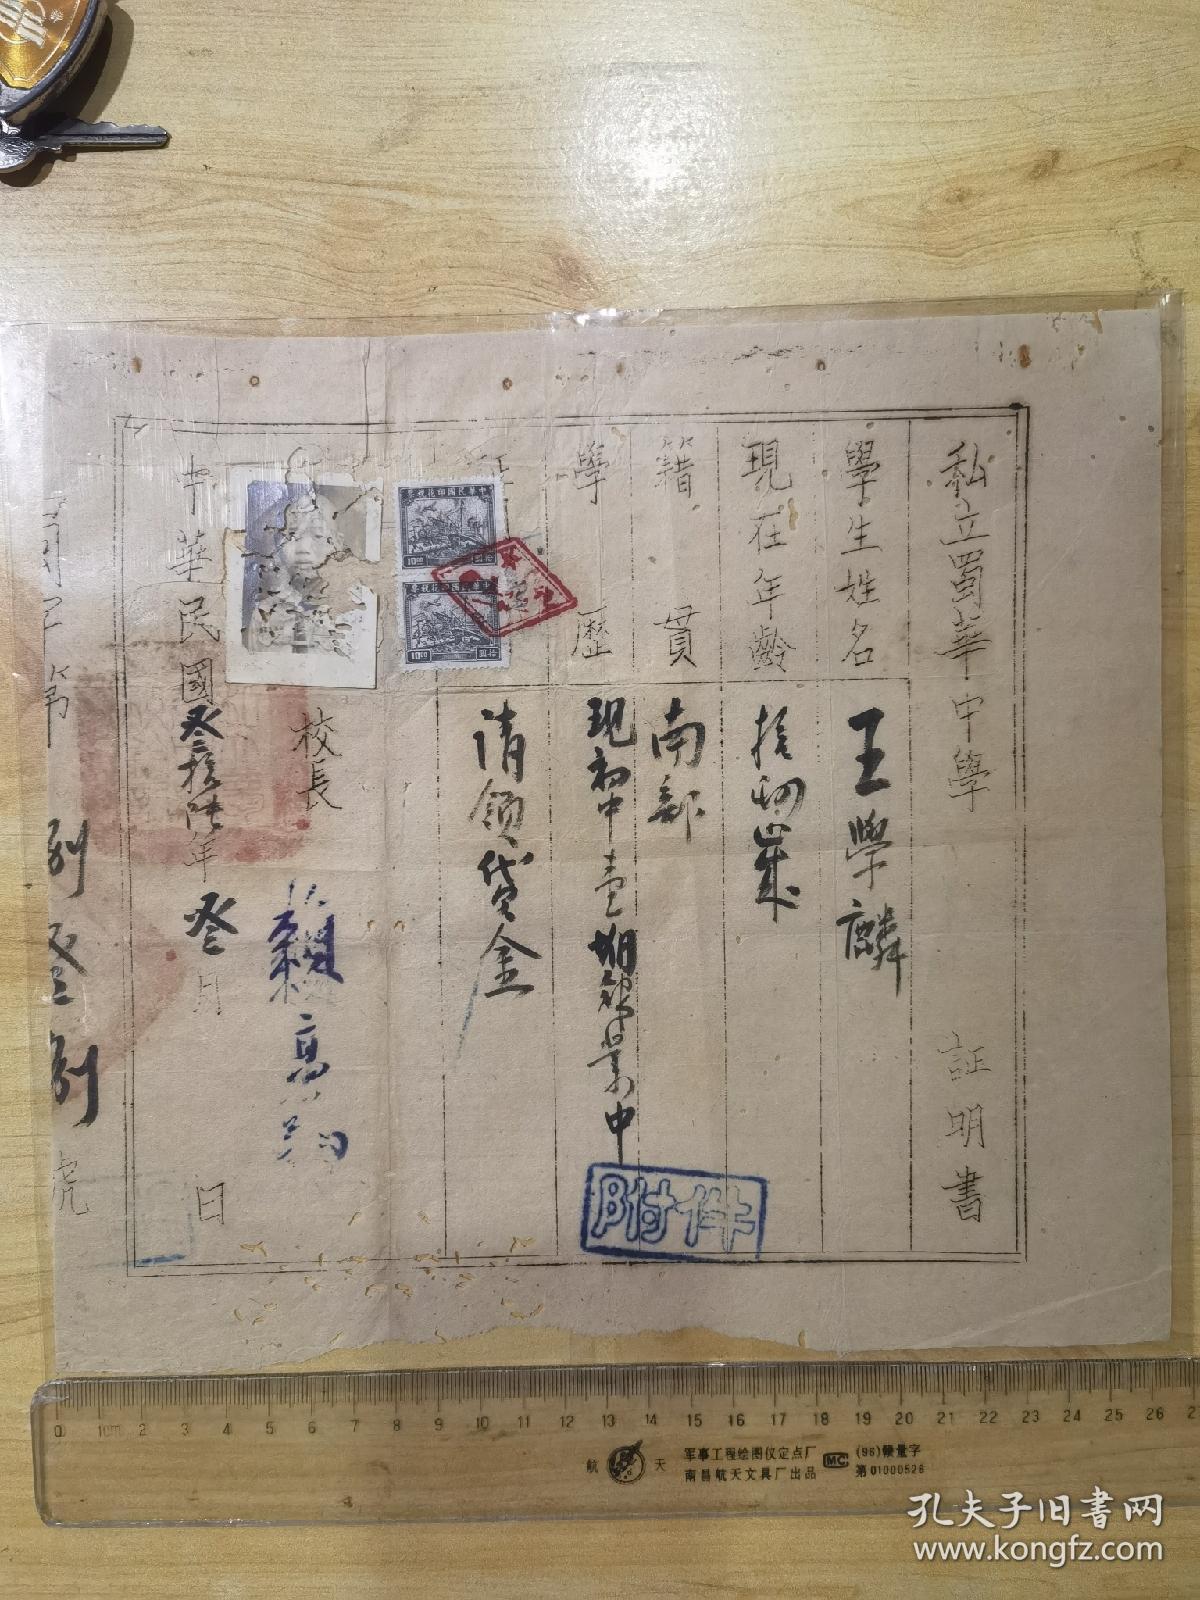 私立蜀華中學 証明書
學生姓名 王學麟
現在年齡 拾捌歲
籍貫 南部
學歷 現初中壹期肄業中
請領貸金
附件
中華民國印花稅票
中華民國印花稅票
校長
中華民國叁拾陸年叁月 日
字第
號
0 1cm 2 3 4 5 6 7 8 9 10 11 12 13 14 15 16 17 18 19 20 21 22 23 24 25 26
航天
军事工程绘图仪定点厂
南昌航天文具厂出品
MC
(96)赣量字
第01000526
孔夫子旧书网
www.kongfz.com